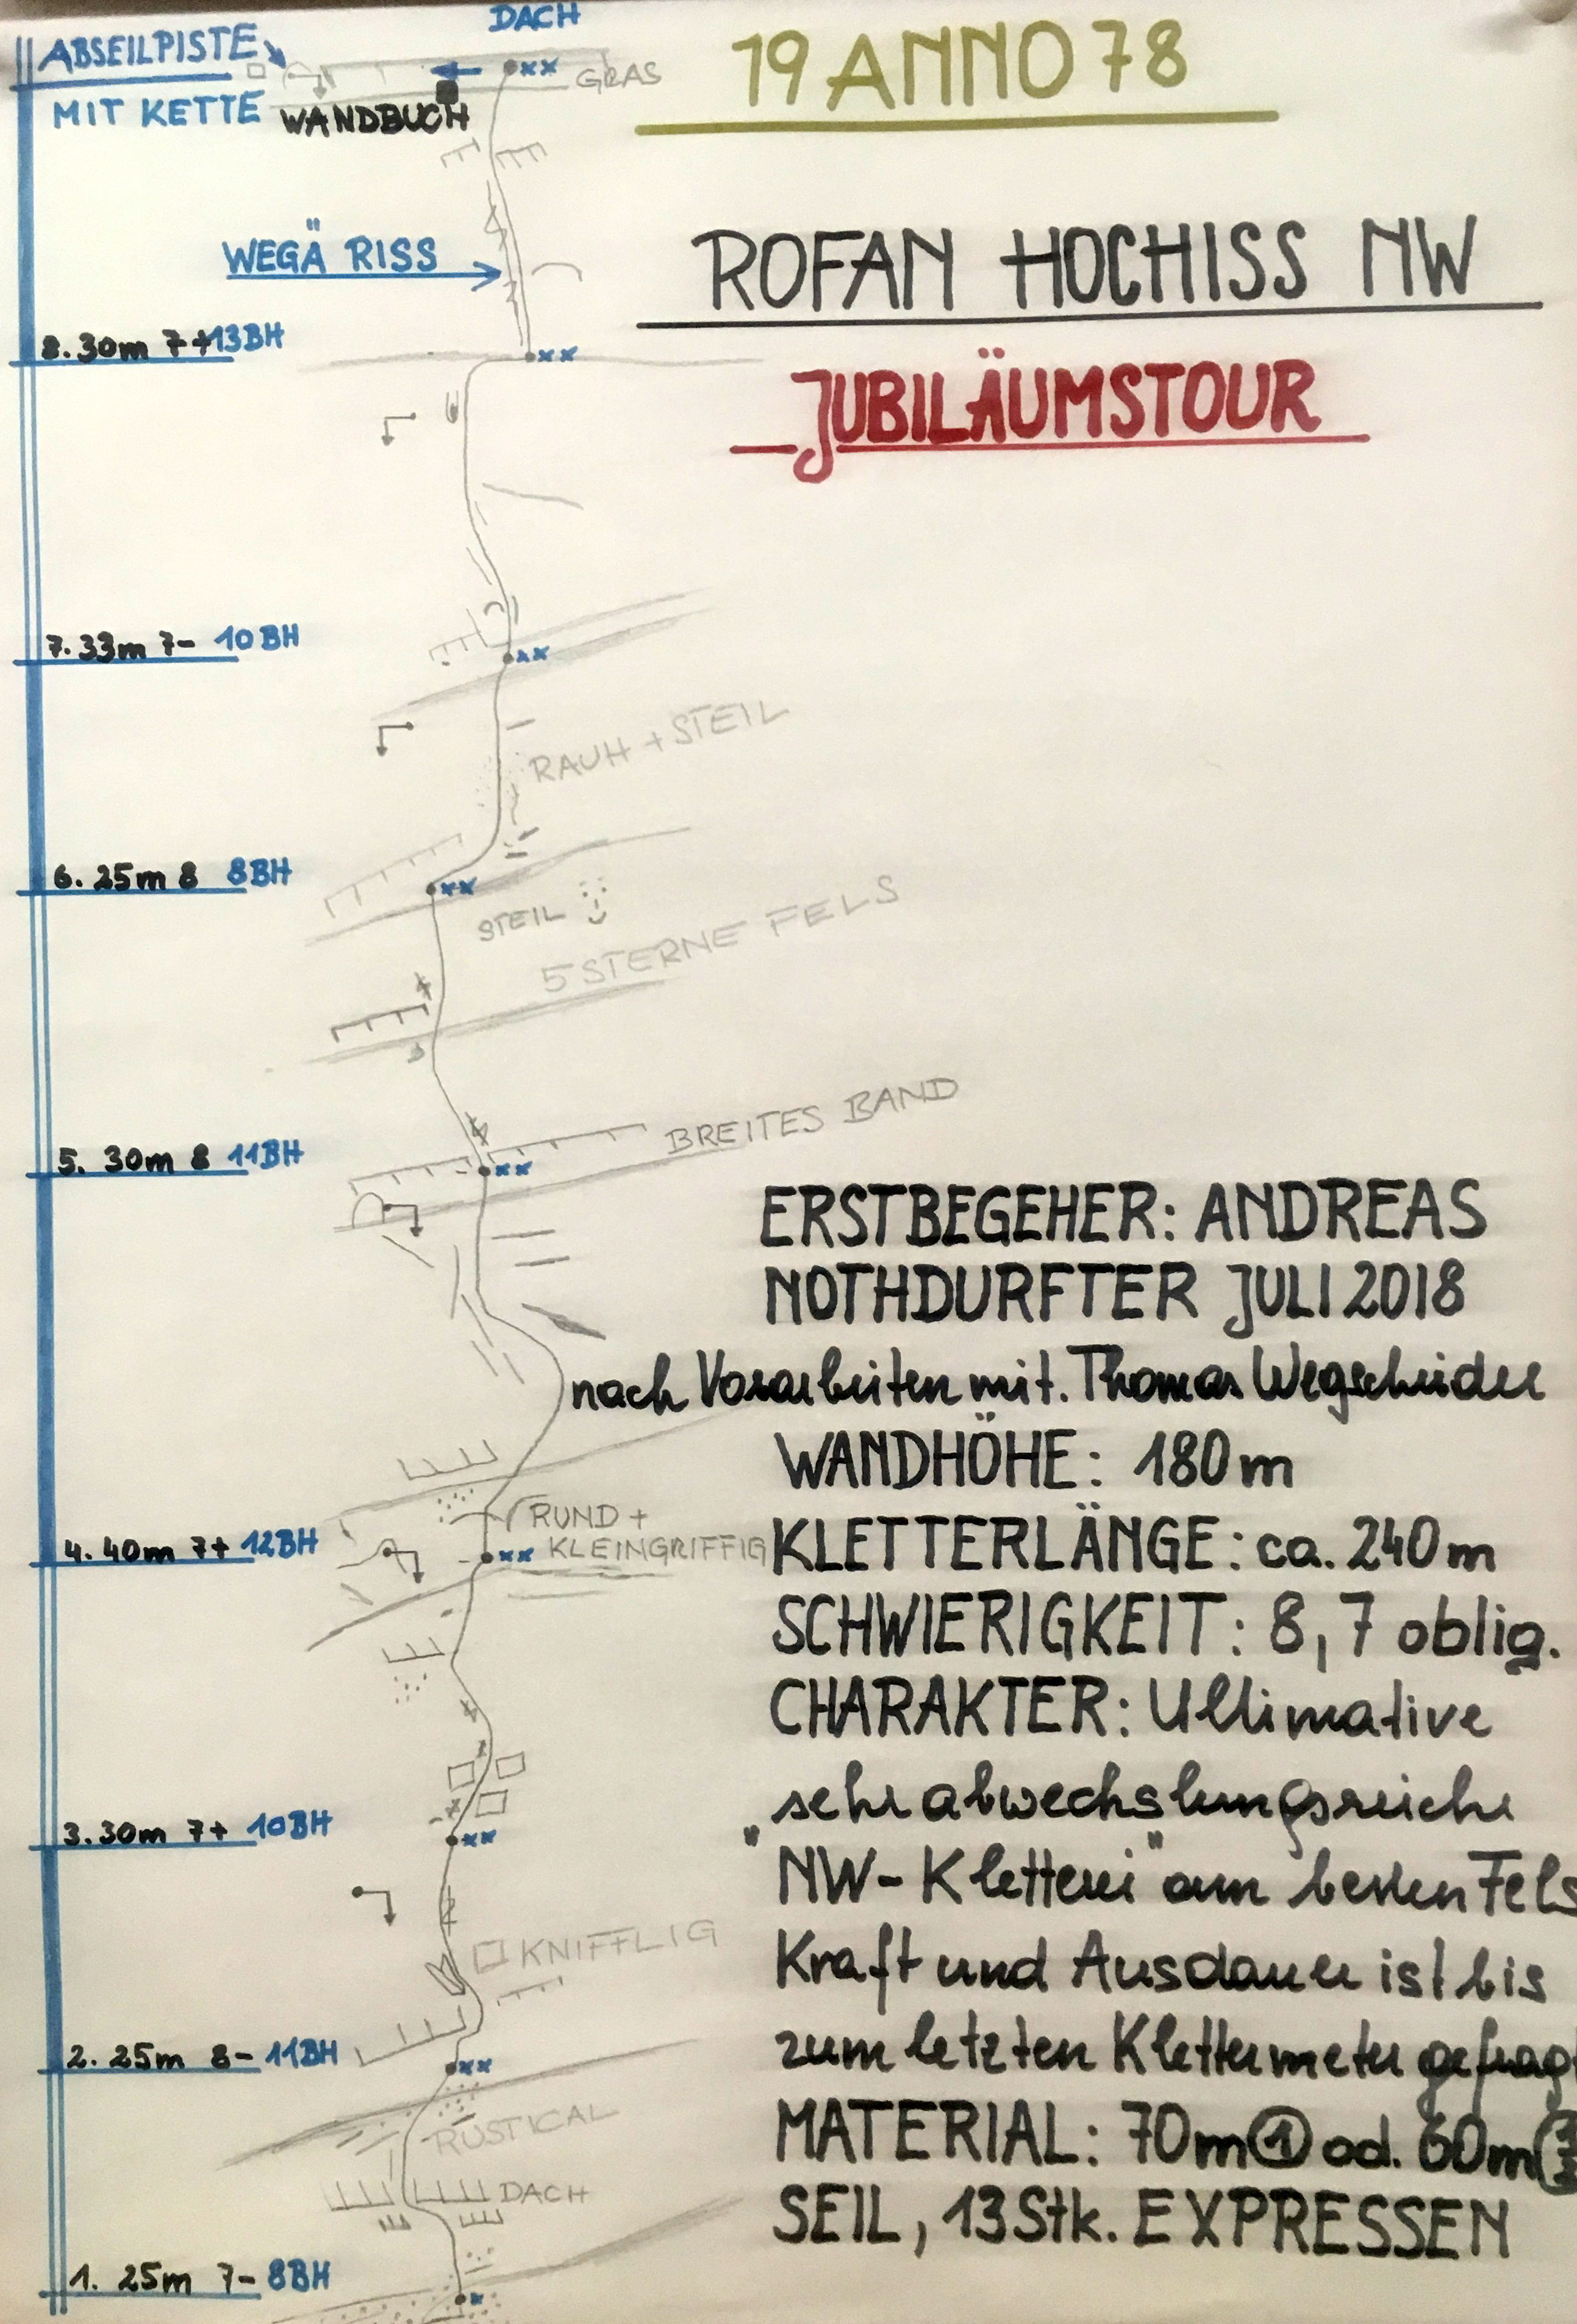 DACH
ABSEILPISTE
MIT KETTE
WANDBUCH
GRAS
19 ANNO 78
WEGÄ RISS
ROFAN HOCHISS NW
8. 30m 7+ 13BH
JUBILÄUMSTOUR
7. 33m 7- 10BH
RAUH + STEIL
6. 25m 8 8BH
STEIL
5 STERNE FELS
BREITES BAND
5. 30m 8 11BH
ERSTBEGEHER: ANDREAS
NOTHDURFTER JULI 2018
nach Vorarbeiten mit. Thomas Wegscheider
WANDHÖHE: 180m
RUND +
KLEINGRIFFIG
4. 40m 7+ 12BH
KLETTERLÄNGE: ca. 240m
SCHWIERIGKEIT: 8, 7 oblig.
CHARAKTER: Ultimative
sehr abwechslungsreiche
3. 30m 7+ 10BH
"NW-Kletterei" am besten Fels
KNIFFLIG
Kraft und Ausdauer ist bis
2. 25m 8- 11BH
zum letzten Klettermeter gefragt
RUSTICAL
MATERIAL: 70m 1 od. 60m
DACH
SEIL, 13 Stk. EXPRESSEN
1. 25m 7- 8BH